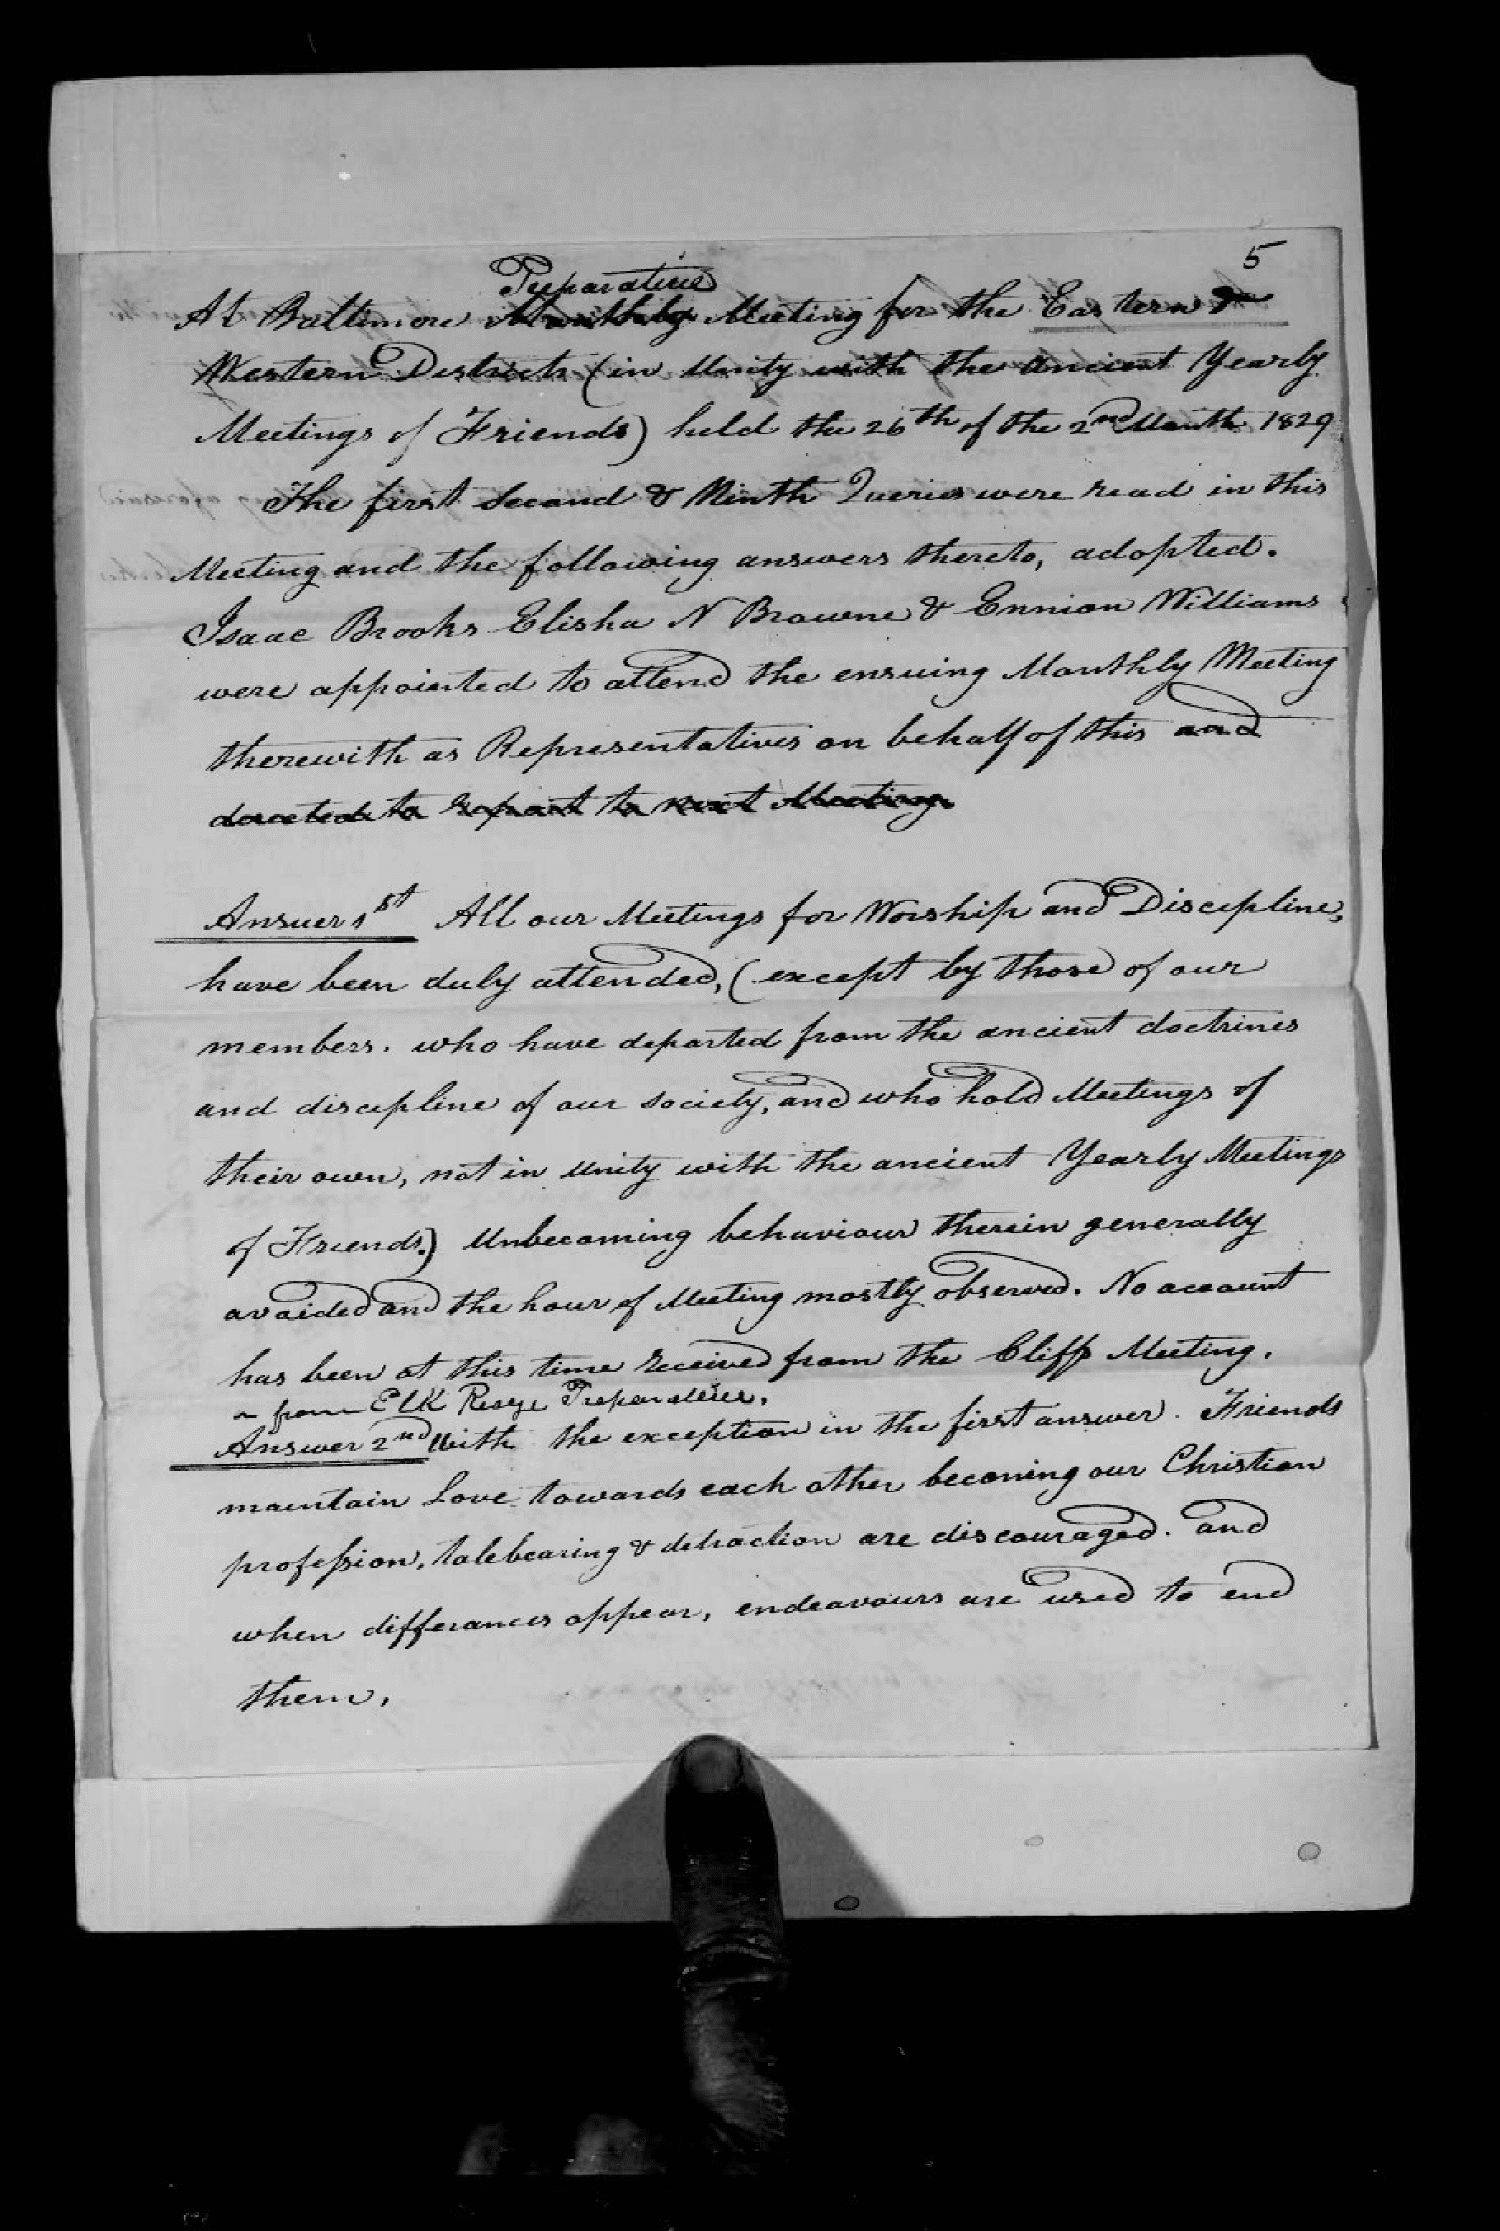 5
Preparative
At Baltimore Monthly Meeting for the Eastern &
Western Districts (in Unity with the ancient Yearly
Meetings of Friends) held the 26th of the 2nd Month 1829
The first Second & Ninth Queries were read in this
Meeting and the following answers thereto, adopted.
Isaac Brooks Elisha N Browne & Ennion Williams
were appointed to attend the ensuing Monthly Meeting
therewith as Representatives on behalf of this and
directed to report to next Meeting.
Answer 1st All our Meetings for Worship and Discipline,
have been duly attended, (except by those of our
members. who have departed from the ancient doctrines
and discipline of our society, and who hold Meetings of
their own, not in Unity with the ancient Yearly Meetings
of Friends.) Unbecoming behaviour therein generally
avoided and the hour of Meeting mostly observed. No account
has been at this time received from the Cliffs Meeting.
from Elk Ridge Preparative.
Answer 2nd With the exception in the first answer. Friends
maintain Love towards each other becoming our Christian
profession, talebearing & detraction are discouraged. and
when differances appear, endeavours are used to end
them.